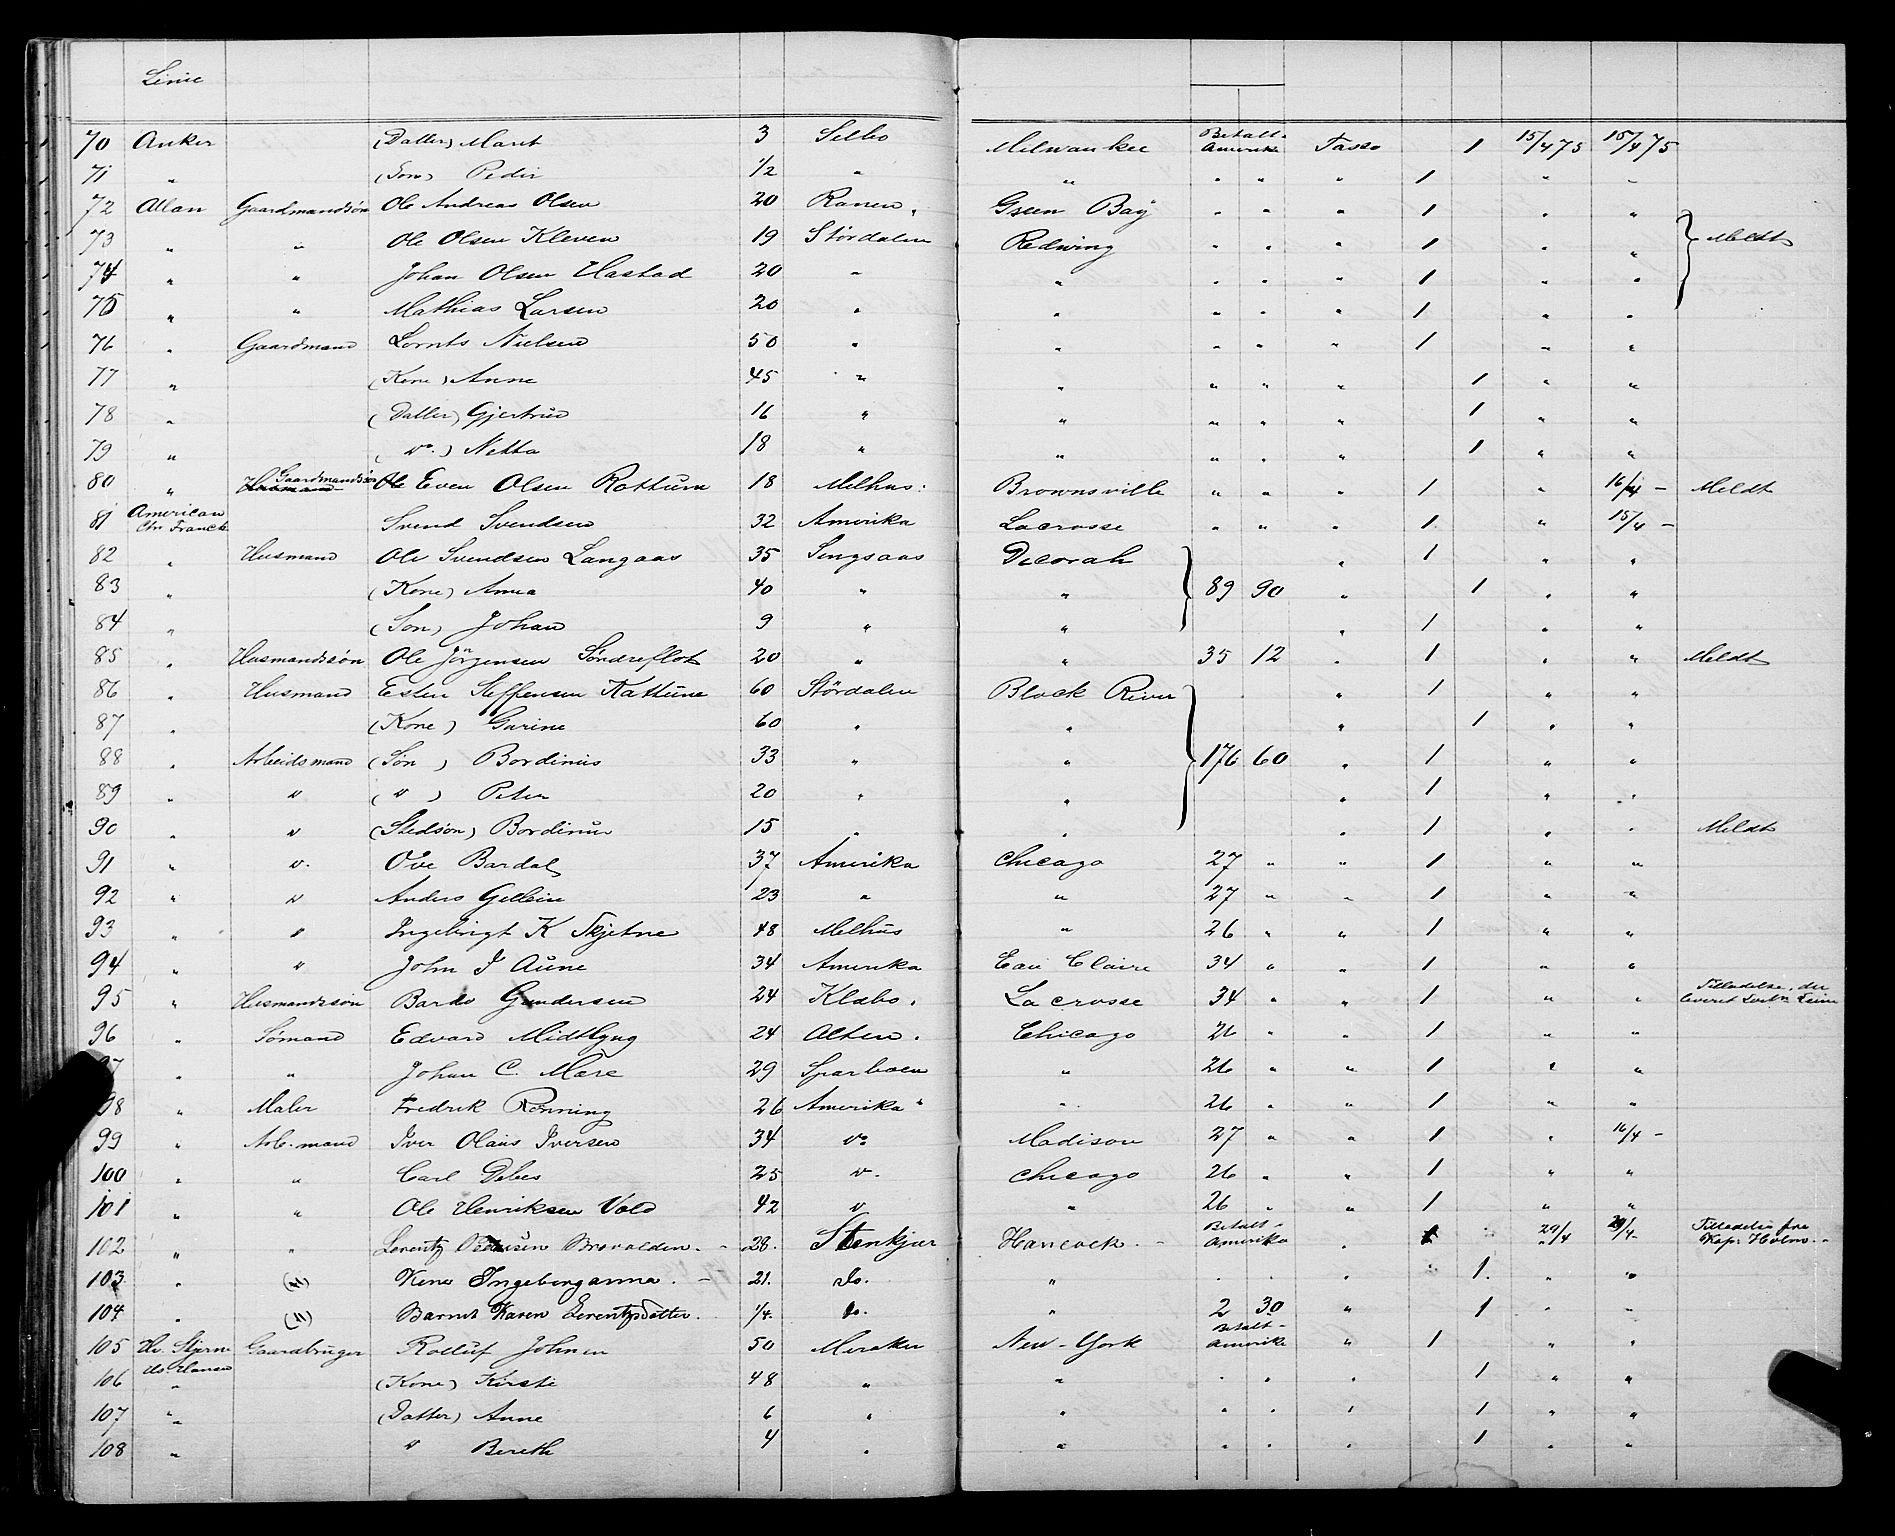 Linie
70 Anker (Datter) Marit 3 Selbo Milwaukee Betalt Amerika Tasso 1 15/4 75 15/4 75
71 " (Søn) Peder 1/2 " " " " " 1 " "
72 Allan Gaardmandsøn Ole Andreas Olsen 20 Ranen Green Bay " " " 1 " "
73 " " Ole Olsen Kleven 19 Størdalen Redwing " " " 1 " " Meldt
74 " " Johan Olsen Hastad 20 " " " " " 1 " "
75 " " Mathias Larsen 20 " " " " " 1 " "
76 " Gaardmand Lornts Nielsen 50 " " " " " 1 " "
77 " (Kone) Anne 45 " " " " " 1 " "
78 " (Datter) Gjertrud 16 " " " " " 1 " "
79 " ( do.) Netta 18 " " " " " 1 " "
80 " Gaardmandsøn Ole Even Olsen Rottum 18 Melhus Brownsville " " " 1 " 16/4 - Meldt
81 American Chr Franck Svend Svendsen 32 Amerika Lacrosse " " " 1 " 15/4 -
82 " Husmand Ole Svendsen Langaas 35 Singsaas Decorah " 1 " "
83 " (Kone) Anna 40 " " 89 90 " 1 " "
84 " (Søn) Johan 9 " " " 1 " "
85 " Husmandsøn Ole Jörgensen Søndreflot 20 " " 35 12 " 1 " " Meldt
86 " Husmand Esten Steffensen Kattum 60 Størdalen Black River " 1 " "
87 " (Kone) Gurine 60 " " " 1 " "
88 " Arbeidsmand (Søn ) Bordinus 33 " " 176 60 " 1 " "
89 " " ( " ) Peter 20 " " " 1 " "
90 " " (Stedsøn) Bordinus 15 " " " 1 " " Meldt
91 " " Ove Bardal 37 Amerika Chicago 27 " " 1 " "
92 " " Anders Gellein 23 " " 27 " " 1 " "
93 " " Ingebrigt K Skjetne 48 Melhus " 26 " " 1 " "
94 " " John J Aune 34 Amerika Eau Claire 34 " " 1 " "
95 " Husmandsøn Bardo Gundersen 24 Klæbo La crosse 34 " " 1 " " Tilladelse
96 " Sømand Edvard Midtlyng 24 Alten Chicago 26 " " 1 " "
97 " " Johan C. Mære 29 Sparboen " 26 " " 1 " "
98 " Maler Fredrik Rønning 26 Amerika " 26 " " 1 " "
99 " Arb.mand Iver Olaus Iversen 34 do Madison 27 " " 1 " 16/4 -
100 " " Carl Debes 25 " Chicago 26 " " 1 " "
101 " " Ole Henriksen Vold 42 " " 26 " " 1 " "
102 " " Lorentz Brovolden 28 Stenkjær Hancock Betalt Amerika " 1 29/4 29/4 Tilladelse fra Kap: Holm
103 " (") Kone Ingeborganna 21. do. " " " " 1. " "
104 " (") Barnet Karen Lorentzdatter 1/4. do. " 2 30 " 1 " "
105 Hv. Stjerne Gaardbruger Rolluf Johnsen 50 Meraker New-York Betalt Amerika " 1 " "
106 Hansen " (Kone) Kirsti 48 " " " " " 1 " "
107 " (Datter) Anne 6 " " " " " 1 " "
108 " " Bereth 4 " " " " " 1 " "